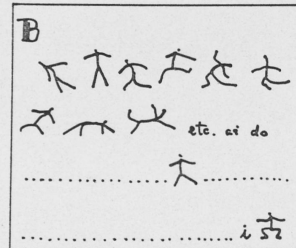 B
etc. ai do
i